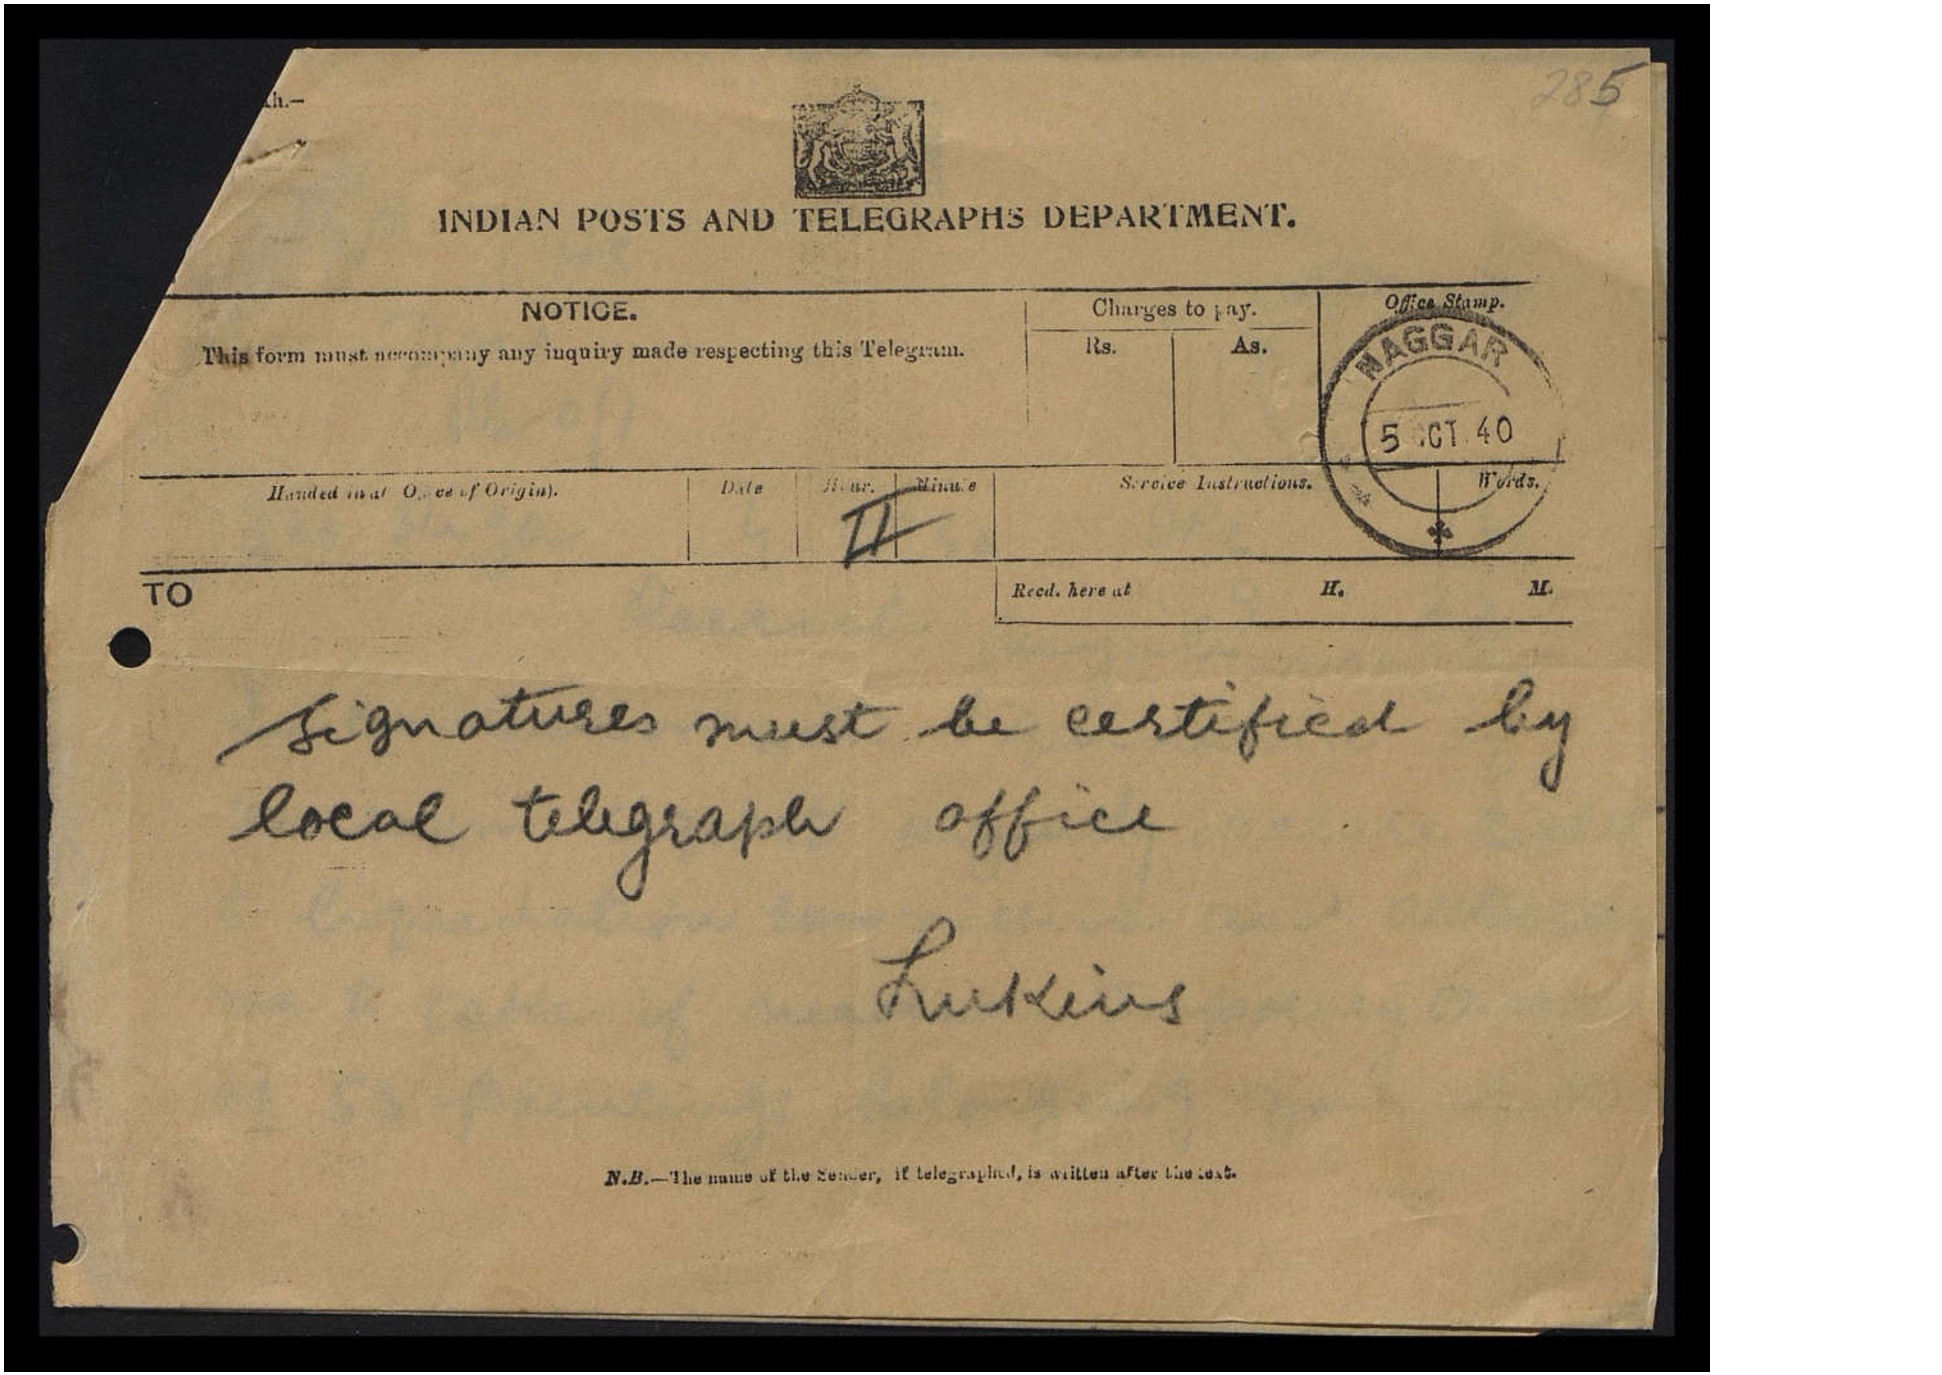 285
th.—
INDIAN POSTS AND TELEGRAPHS DEPARTMENT.
NOTICE.
This form must accompany any inquiry made respecting this Telegram.
Charges to pay.
Rs. As.
Office Stamp.
NAGGAR
5 OCT 40
Handed in at (Office of Origin).
Date
Hour.
Minute
Service Instructions.
Words.
II
TO
Recd. here at H. M.
Signatures must be certified by
local telegraph office
Lukins
N.B.—The name of the Sender, if telegraphed, is written after the text.